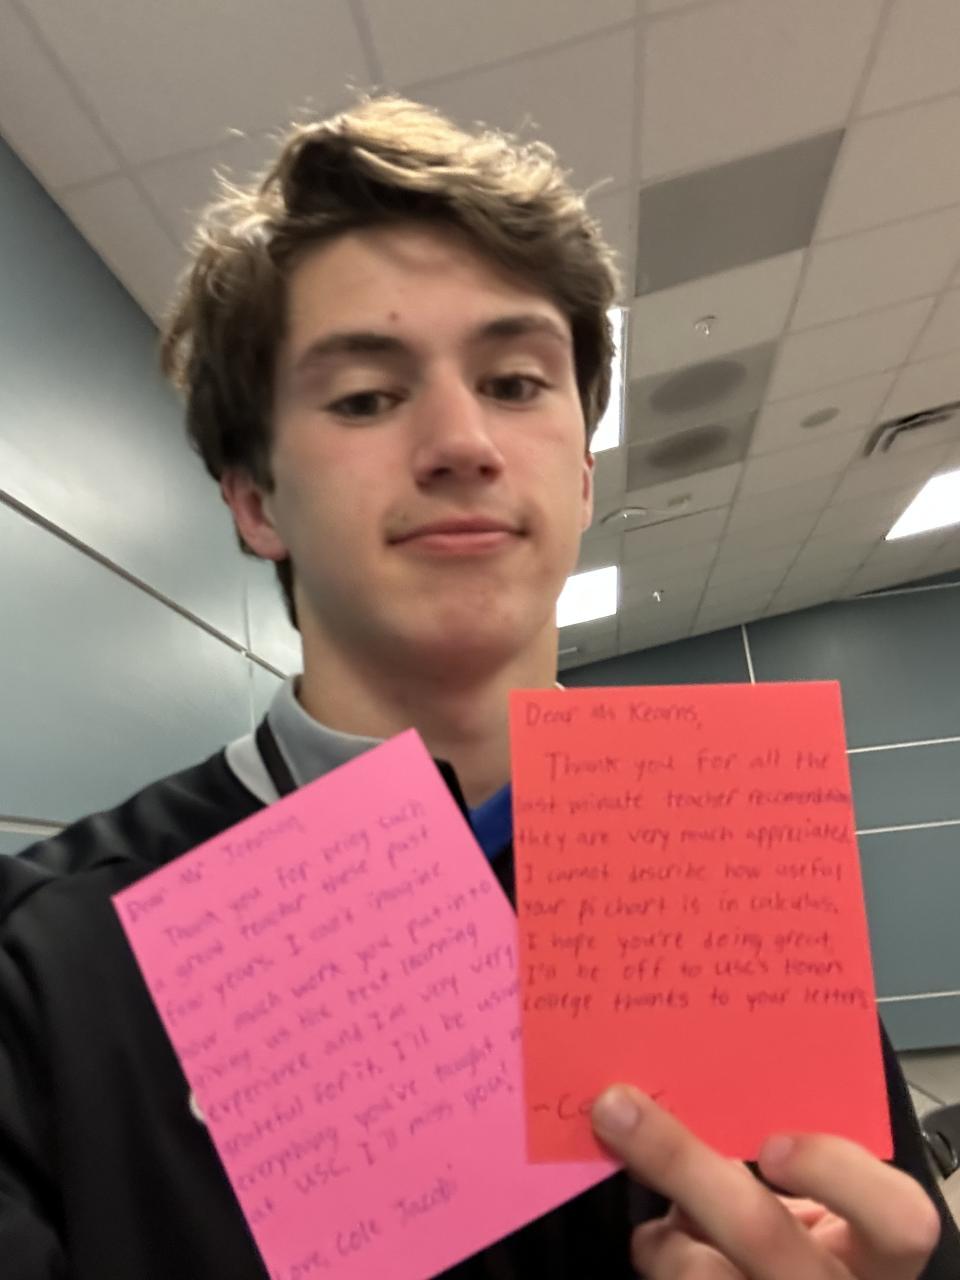 Dear Ms Johnson,
Thank you for being such
a great teacher these past
few years. I can't imagine
how much work you put into
giving us the best learning
experience and I'm very very
grateful for it. I'll be using
everything you've taught
at USC. I'll miss you!
Love, Cole Jacobi
Dear Ms Kearns,
Thank you for all the
last minute teacher
they are very much appreciated
I cannot describe how useful
your pi chart is in calculus.
I hope you're doing great,
I'll be off to USC's Honors
college thanks to your letters